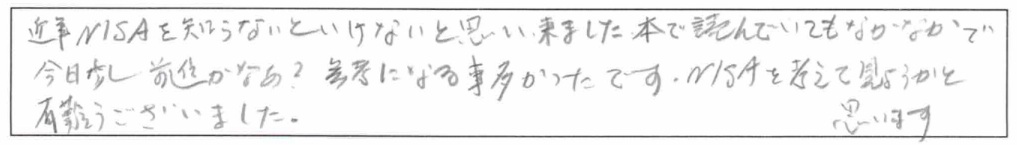 近年NISAを知らないといけないと思い、来ました。本で読んでいてもなかなかで
今日少し前進かなぁ？参考になる事多かったです。NISAを考えて見ようかと
思います
有難うございました。